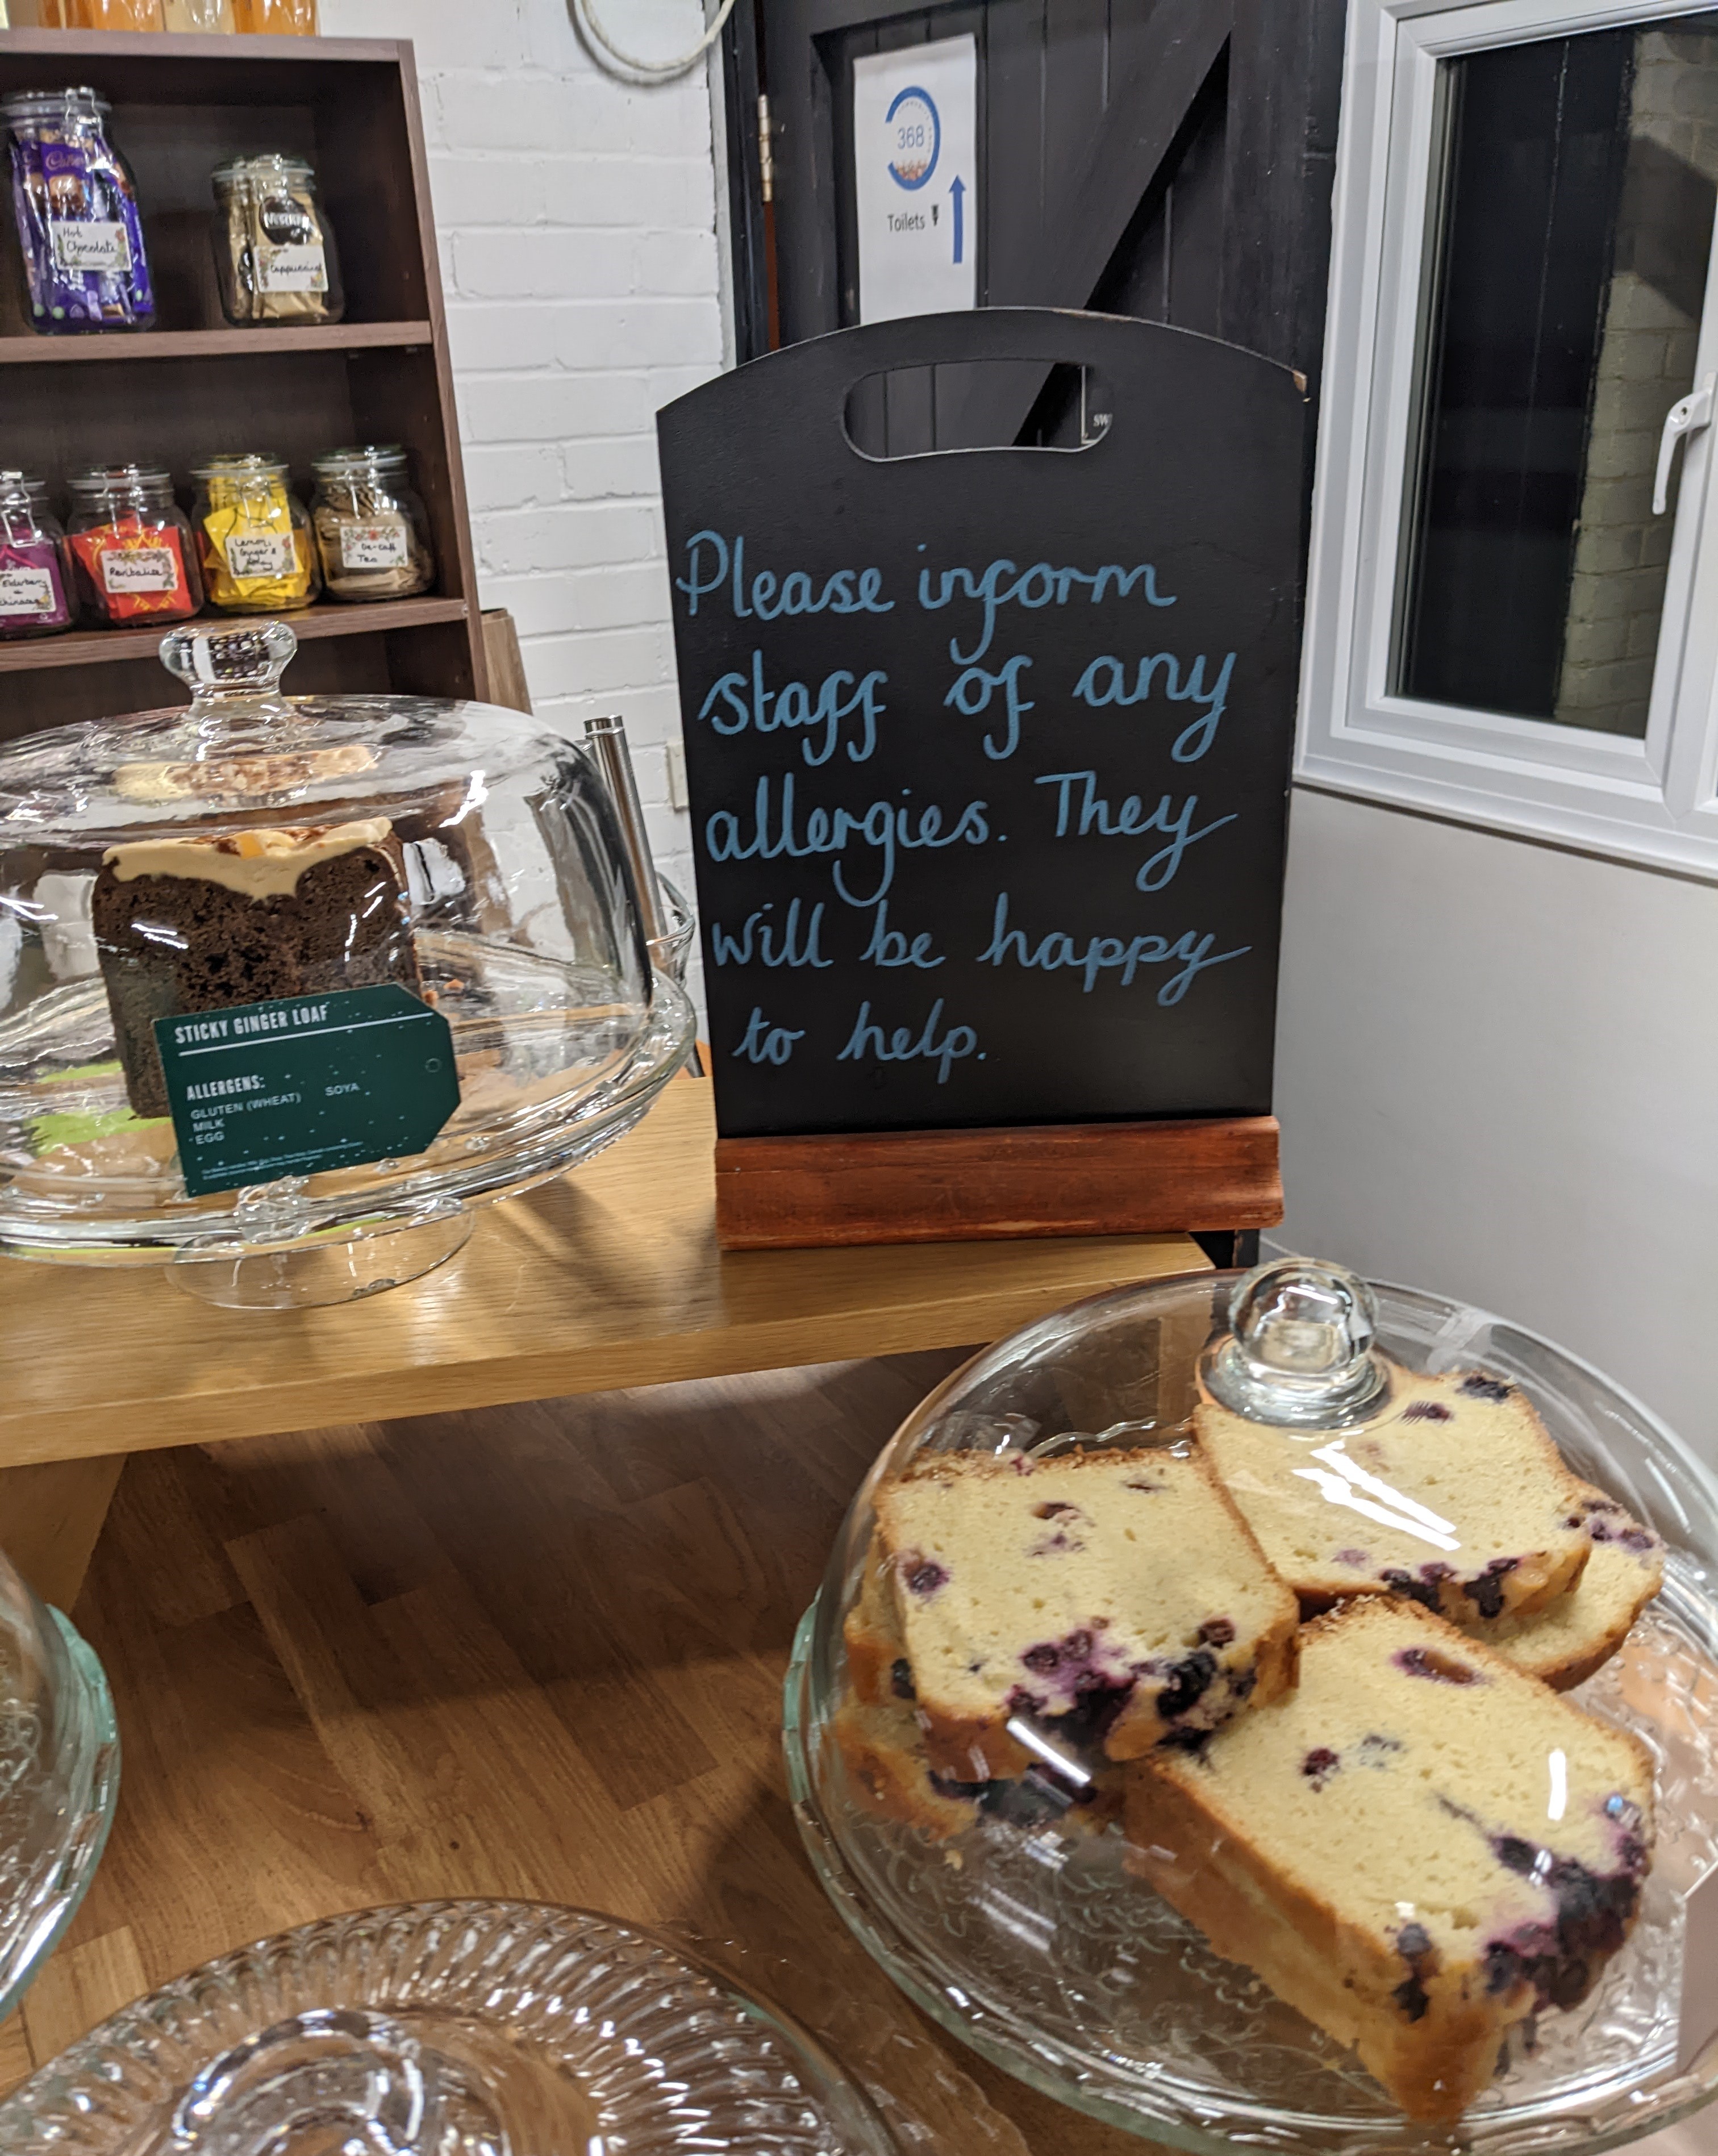 368
Toilets
Hot
Chocolate
Cappuccino
Elderberry
&
Revitalise
Lemon,
Ginger &
De-caff
Tea
Please inform
staff of any
allergies. They
will be happy
to help.
STICKY GINGER LOAF
ALLERGENS:
GLUTEN (WHEAT) SOYA
MILK
EGG